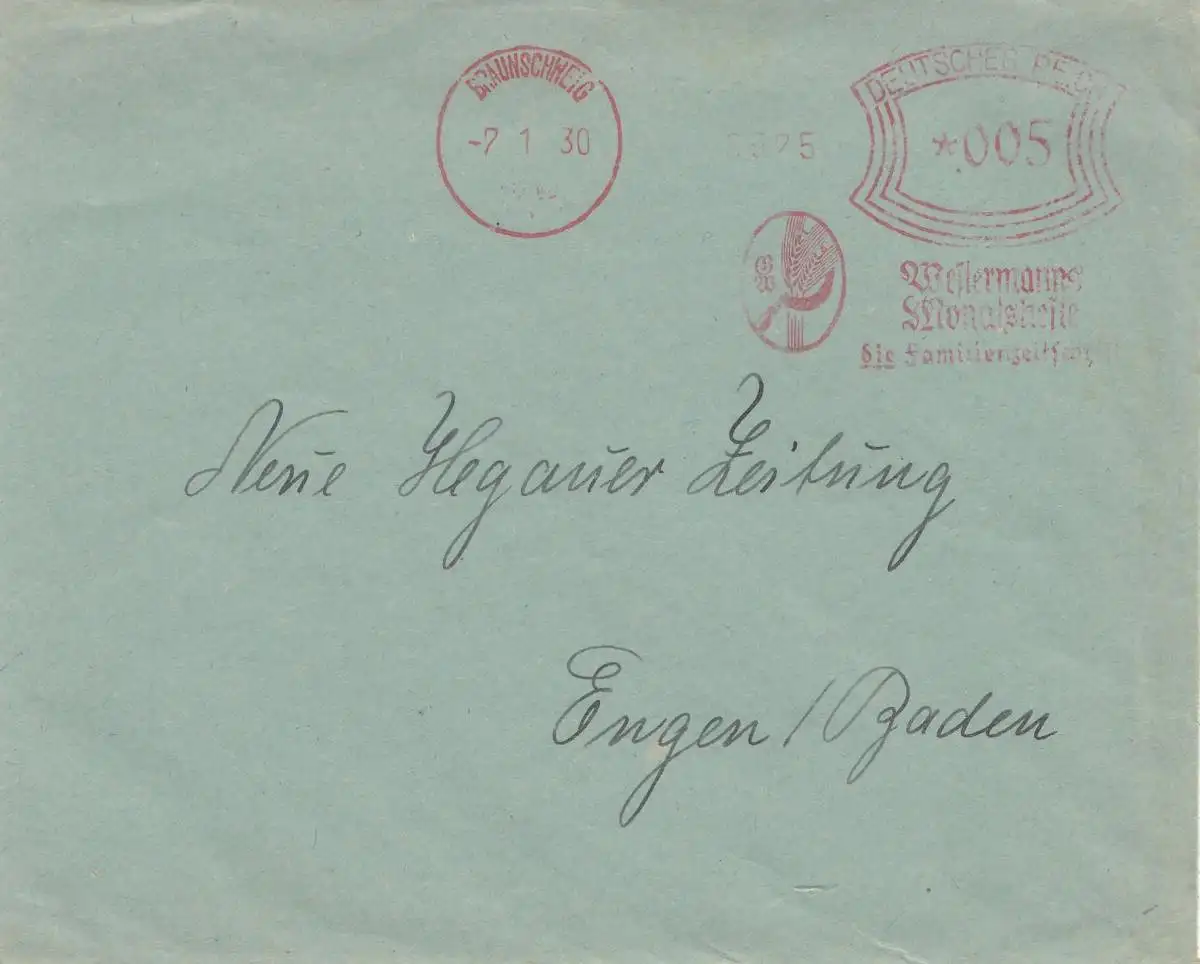 BRAUNSCHWEIG
-7 1 30
DEUTSCHES REICH
*005
GW
Westermanns
Monatshefte
die Familienzeitschrift
Neue Hegauer Zeitung
Engen / Baden